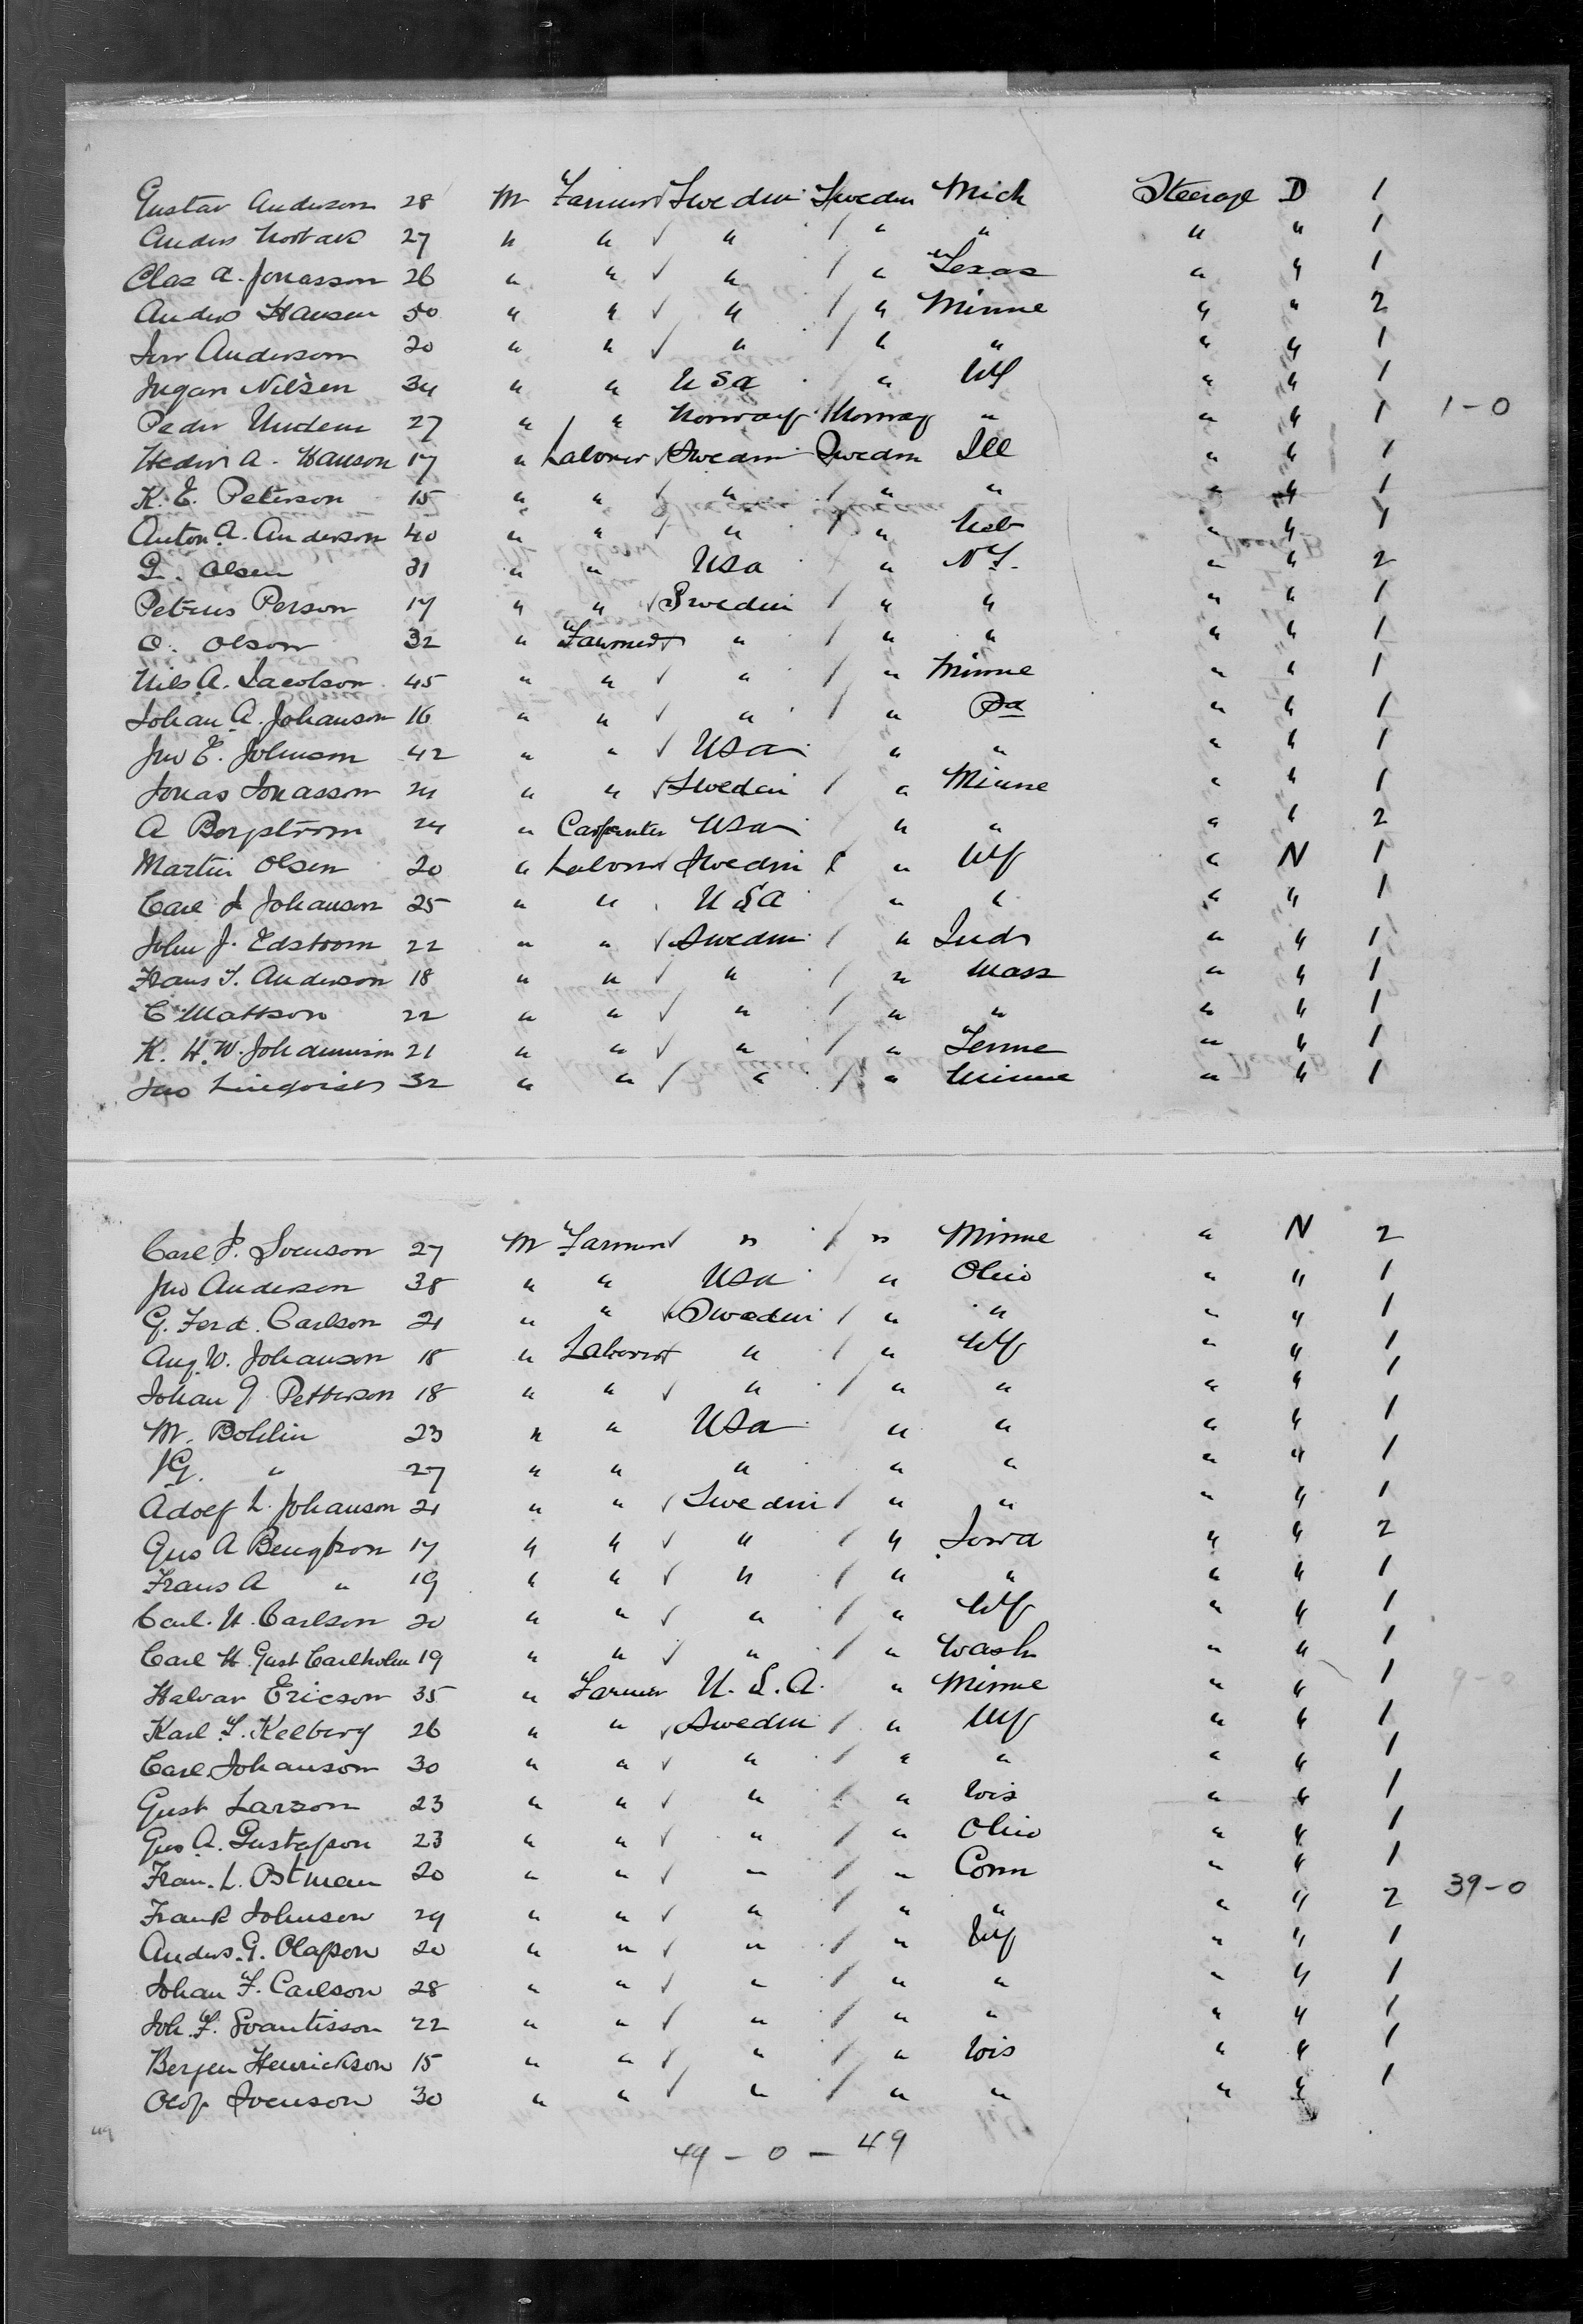 Gustav Anderson 28 M Farmer Sweden Sweden Mich Steerage D 1
Anders 27 " " " " " " " 1
Clas A. Jonasson 26 " " " " Texas " " 1
Anders Hansen 50 " " " " Minne " " 2
Anderson 20 " " " " " " " 1
Ingar Nilsen 34 " " USA " NY " " 1
Peder 27 " " Norway Norway " " " 1 1-0
Hedvi A. Hanson 17 " Laborer Sweden Sweden Ill " " 1
K. E. Peterson 15 " " " " " " " 1
Anton A. Anderson 40 " " " " Neb " " 1
Olsen 31 " " USA " NY. " " 2
Petrus Person 17 " " Sweden " " " " 1
O. Olson 32 " Farmer " " " " " 1
Nils A. Jacobson 45 " " " " Minne " " 1
Johan A. Johanson 16 " " " " Pa " " 1
Jno E. Johnson 42 " " USA " " " " 1
Jonas Jonasson 24 " " Sweden " Minne " " 1
A Borgstrom 24 " Carpenter USA " " " " 2
Martin Olsen 20 " Laborer Sweden " NY " N 1
Carl J Johanson 25 " " USA " " " " 1
John J. Edstrom 22 " " Sweden " Ind " " 1
Frans T. Anderson 18 " " " " Mass " " 1
C Mattson 22 " " " " " " " 1
K. H. W. Johannison 21 " " " " Tenne " " 1
Jno Linqvist 32 " " " " Minne " " 1
Carl P. Svenson 27 M Farmer " " Minne " N 2
Jno Anderson 38 " " USA " Ohio " " 1
G. Ferd. Carlson 21 " " Sweden " " " " 1
Aug. W. Johanson 18 " Laborer " " NY " " 1
Johan G. Petterson 18 " " " " " " " 1
M. Bohlin 23 " " USA " " " " 1
G. " 27 " " " " " " " 1
Adolf L. Johanson 21 " " Sweden " " " " 1
Gus A Bengtson 17 " " " " Iowa " " 2
Frans A " 19 " " " " " " " 1
Carl. H. Carlson 20 " " " " NY " " 1
Carl H. Gust Carlholm 19 " " " " Wash " " 1
Halvar Ericson 35 " Farmer U.S.A. " Minne " " 1 9-0
Karl F. Kelberg 26 " " Sweden " NY " " 1
Carl Johanson 30 " " " " " " " 1
Gust Larson 23 " " " " Wis " " 1
Gus A. Gustafson 23 " " " " Ohio " " 1
Fran. L. Ostman 20 " " " " Conn " " 1
Frank Johnson 29 " " " " " " " 2 39-0
Anders. G. Olafson 20 " " " " NY " " 1
Johan F. Carlson 28 " " " " " " " 1
Joh. F. Svantisson 22 " " " " " " " 1
Bergen Henrickson 15 " " " " Wis " " 1
Olof Svenson 30 " " " " " " " 1
49 - 0 - 49